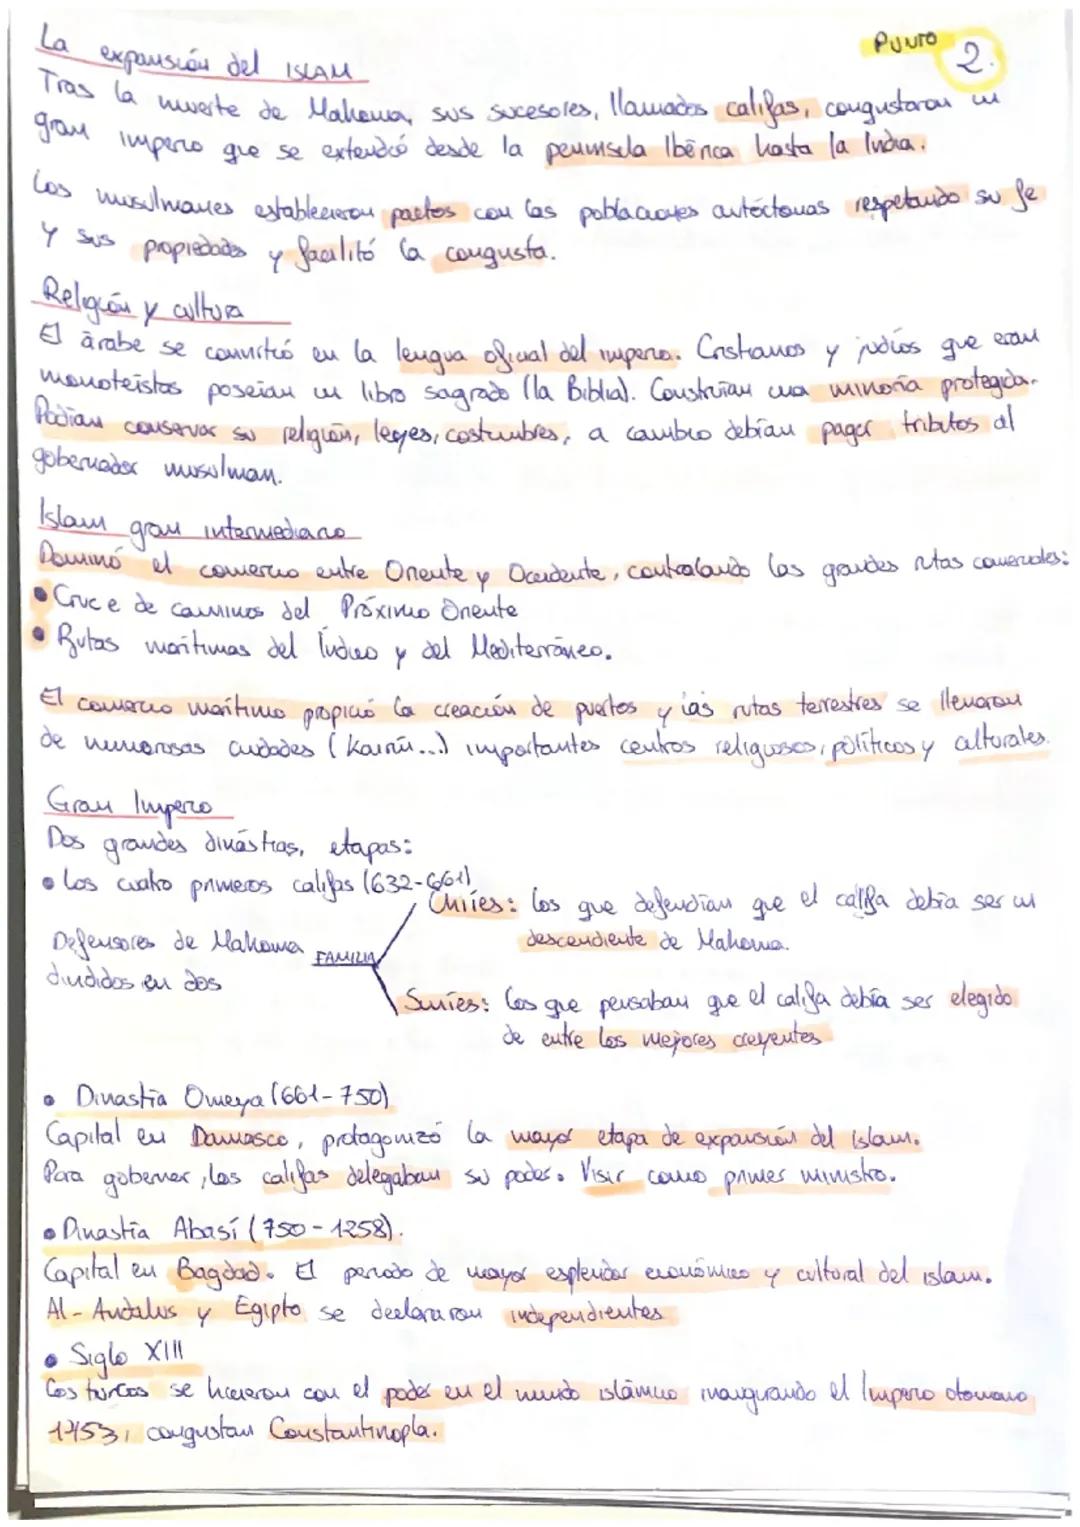 La expansión del ISLAM
PUNTO 2.
Tras la muerte de Mahoma, sus sucesores, llamados califas, conquistaron un
gran imperio que se extendió desde la península Ibérica hasta la India.
Los musulmanes establecieron pactos con las poblaciones autóctonas respetando su fe
y sus propiedades y facilitó la conquista.
Religión y cultura
El árabe se convirtió en la lengua oficial del imperio. Cristianos y judíos que eran
monoteístas poseían un libro sagrado (la Biblia). Construían una minoría protegida.
Podían conservar su religión, leyes, costumbres, a cambio debían pagar tributos al
gobernador musulman.
Islam gran intermediario
Dominó el comercio entre Oriente y Occidente, controlando las grandes rutas comerciales:
• Cruce de caminos del Próximo Oriente
• Rutas marítimas del Índico y del Mediterráneo.
El comercio marítimo propició la creación de puertos y las rutas terrestres se llenaron
de numerosas ciudades (Kairú...) importantes centros religiosos, políticos y culturales.
Gran Imperio
Dos grandes dinástias, etapas:
• Los cuatro primeros califas (632-661)
Chiíes: los que defendían que el califa debía ser un
descendiente de Mahoma.
Defensores de Mahoma FAMILIA
divididos en dos
Suníes: Los que pensaban que el califa debía ser elegido
de entre los mejores creyentes
• Dinastía Omeya (661-750)
Capital en Damasco, protagonizó la mayor etapa de expansión del islam.
Para gobernar, los califas delegaban su poder. Visir como primer ministro.
• Dinastía Abasí (750-1258).
Capital en Bagdad. El periodo de mayor esplendor económico y cultural del islam.
Al-Andalus y Egipto se declararon independientes
• Siglo XIII
Los turcos se hicieron con el poder en el mundo islámico inaugurando el Imperio otomano
1453, conquistan Constantinopla.